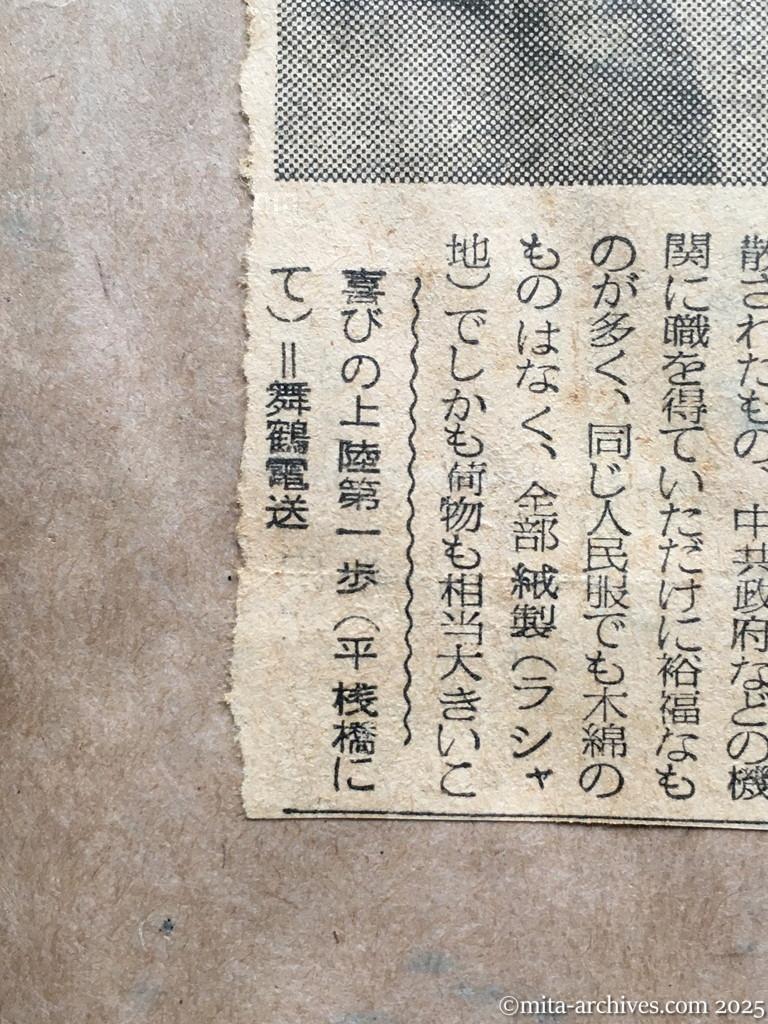 散されたもの、中共政府などの機
関に職を得ていただけに裕福なも
のが多く、同じ人民服でも木綿の
ものはなく、全部絨製（ラシャ
地）でしかも荷物も相当大きいこ
喜びの上陸第一歩（平桟橋に
て）＝舞鶴電送
©mita-archives.com 2025